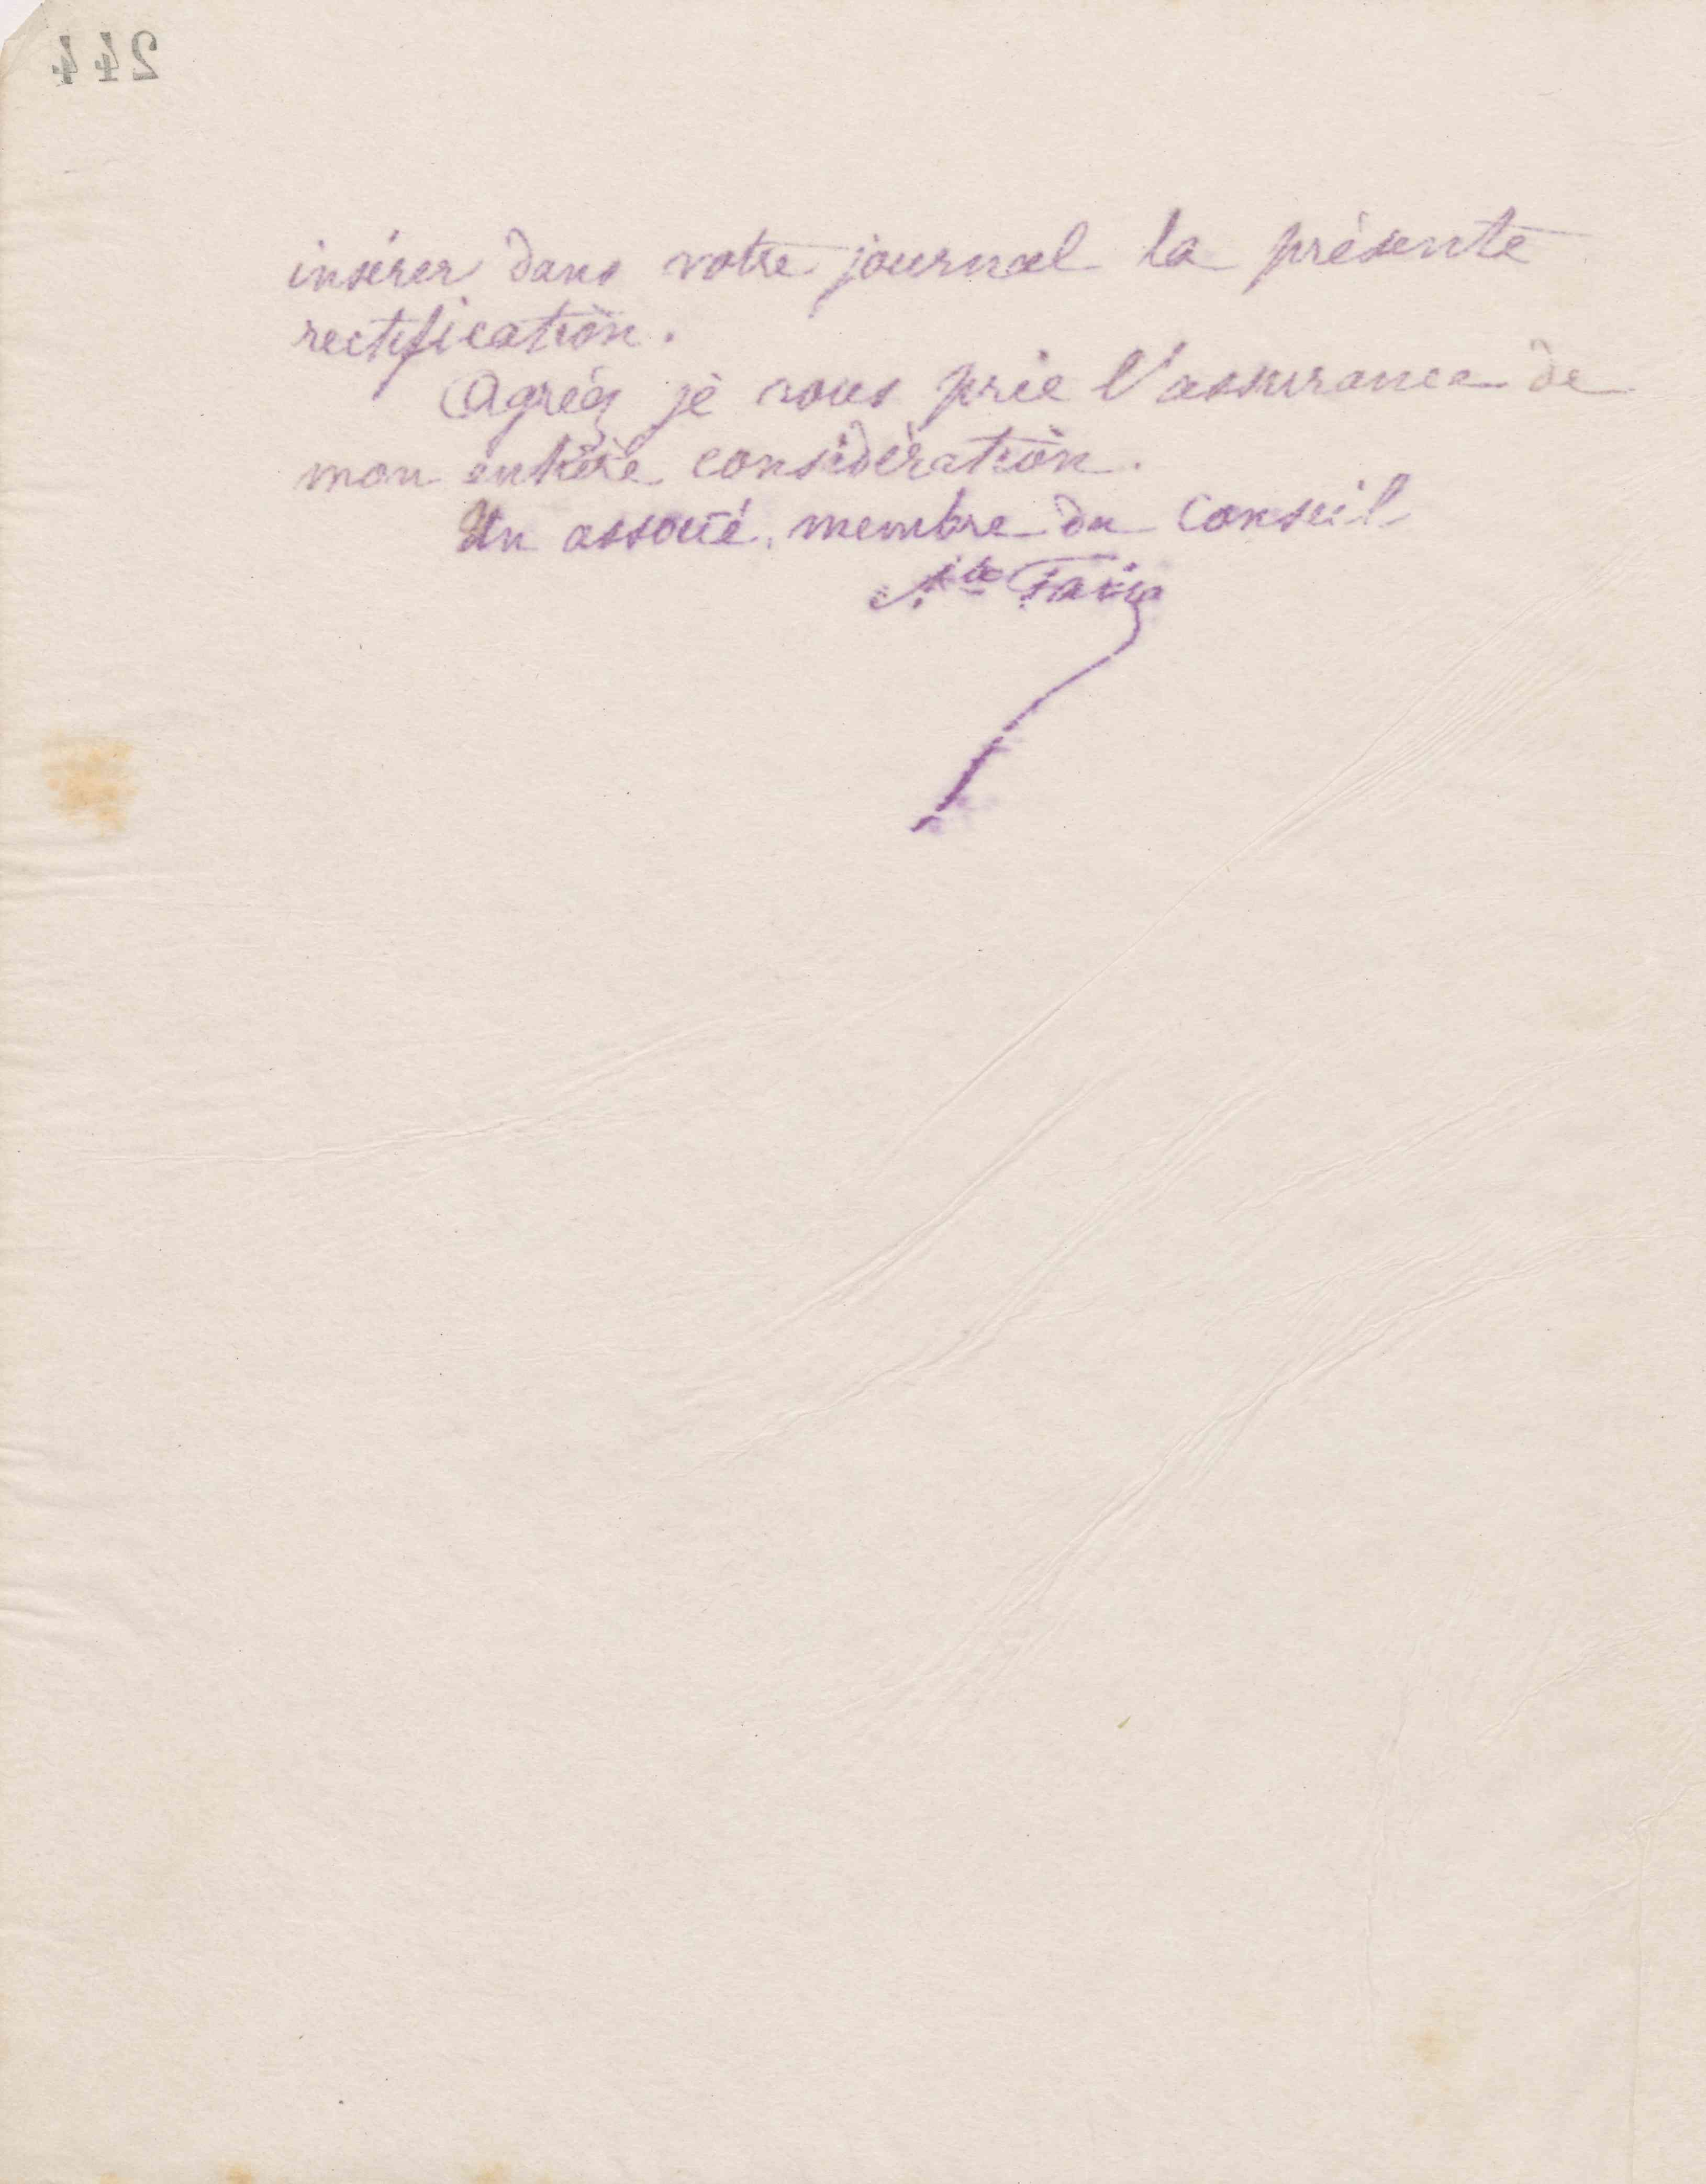 244
insérer dans votre journal la présente
rectification.
Agréez je vous prie l'assurance de
mon entière considération.
Un associé, membre du Conseil